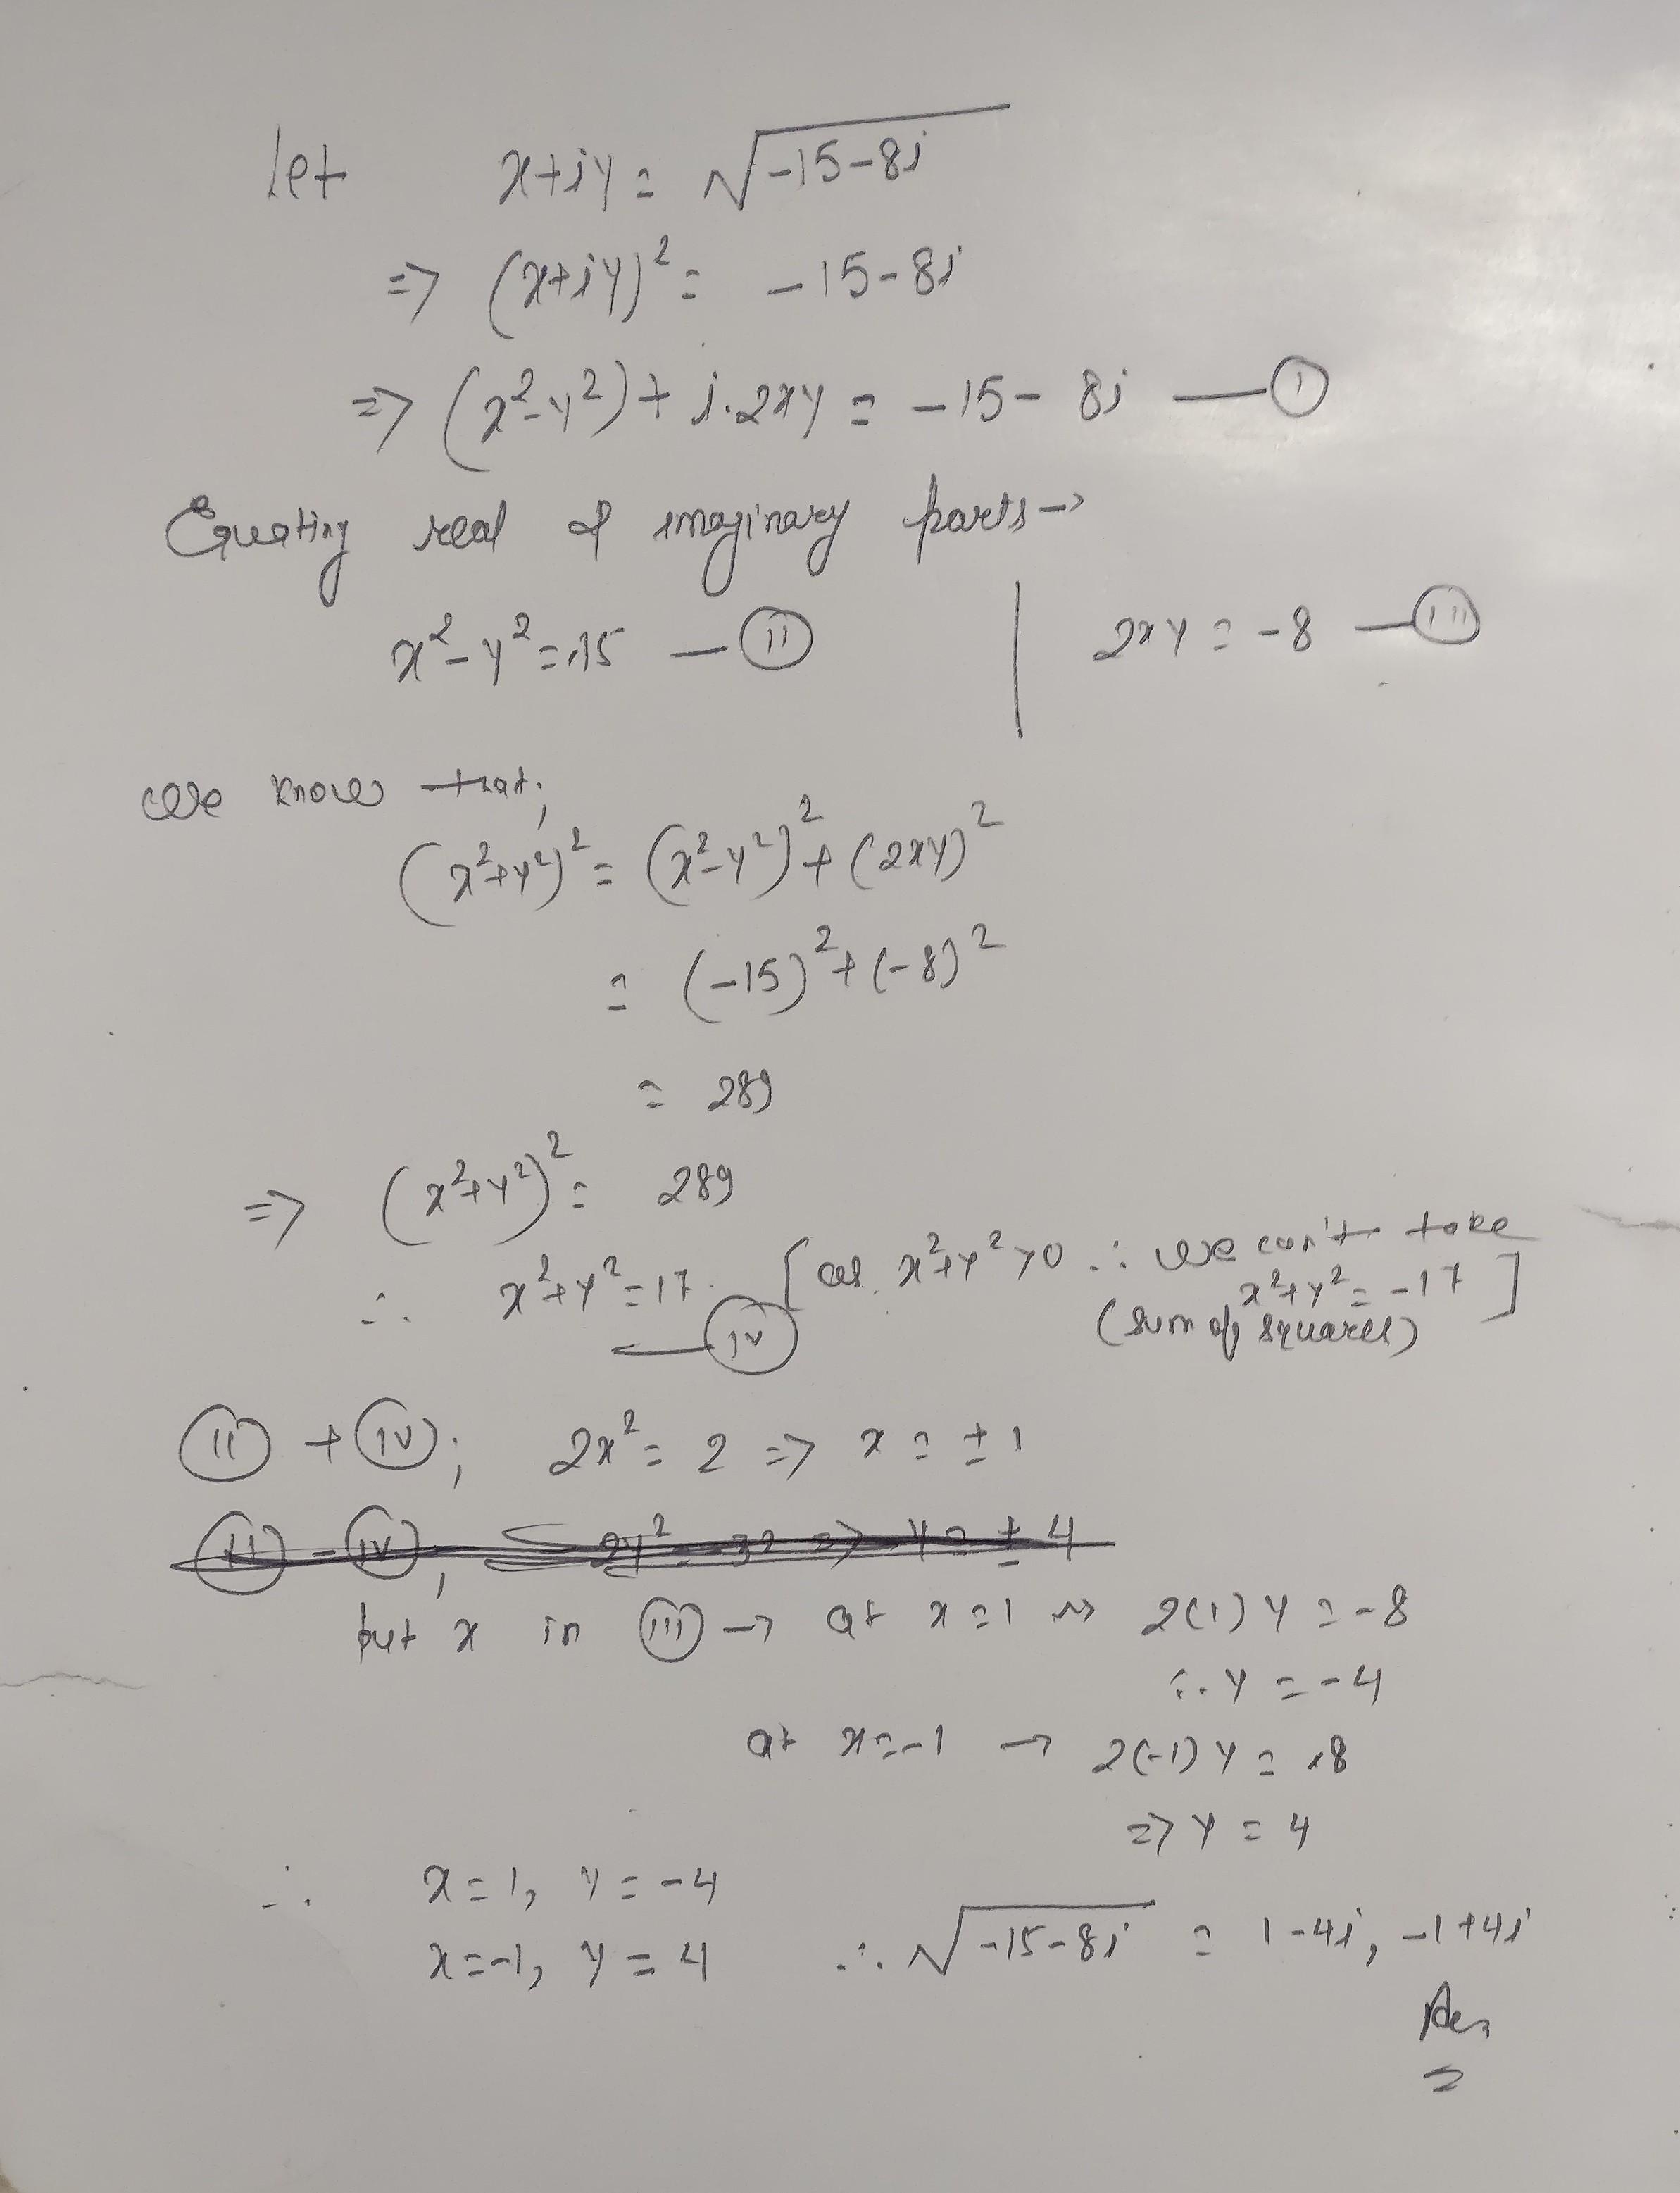 Let x+iy = √-15-8i
=> (x+iy)² = -15-8i
=> (x²-y²)+ i.2xy = -15- 8i — (i)
Equating real & imaginary parts->
x²-y²=-15 — (ii) | 2xy = -8 — (iii)
We know that;
(x²+y²)² = (x²-y²)²+(2xy)²
= (-15)²+(-8)²
= 289
=> (x²+y²)² = 289
∴ x²+y²=17 — (iv) [as x²+y²>0 ∴ we can't take
x²+y²=-17]
(sum of squares)
(ii) + (iv); 2x² = 2 => x = ±1
(ii) - (iv); 2y² = 32 => y = ±4
put x in (iii) -> at x=1 => 2(1)y = -8
∴ y = -4
at x=-1 -> 2(-1)y = -8
=> y = 4
∴ x=1, y=-4
x=-1, y=4 ∴ √-15-8i = 1-4i, -1+4i
Ans